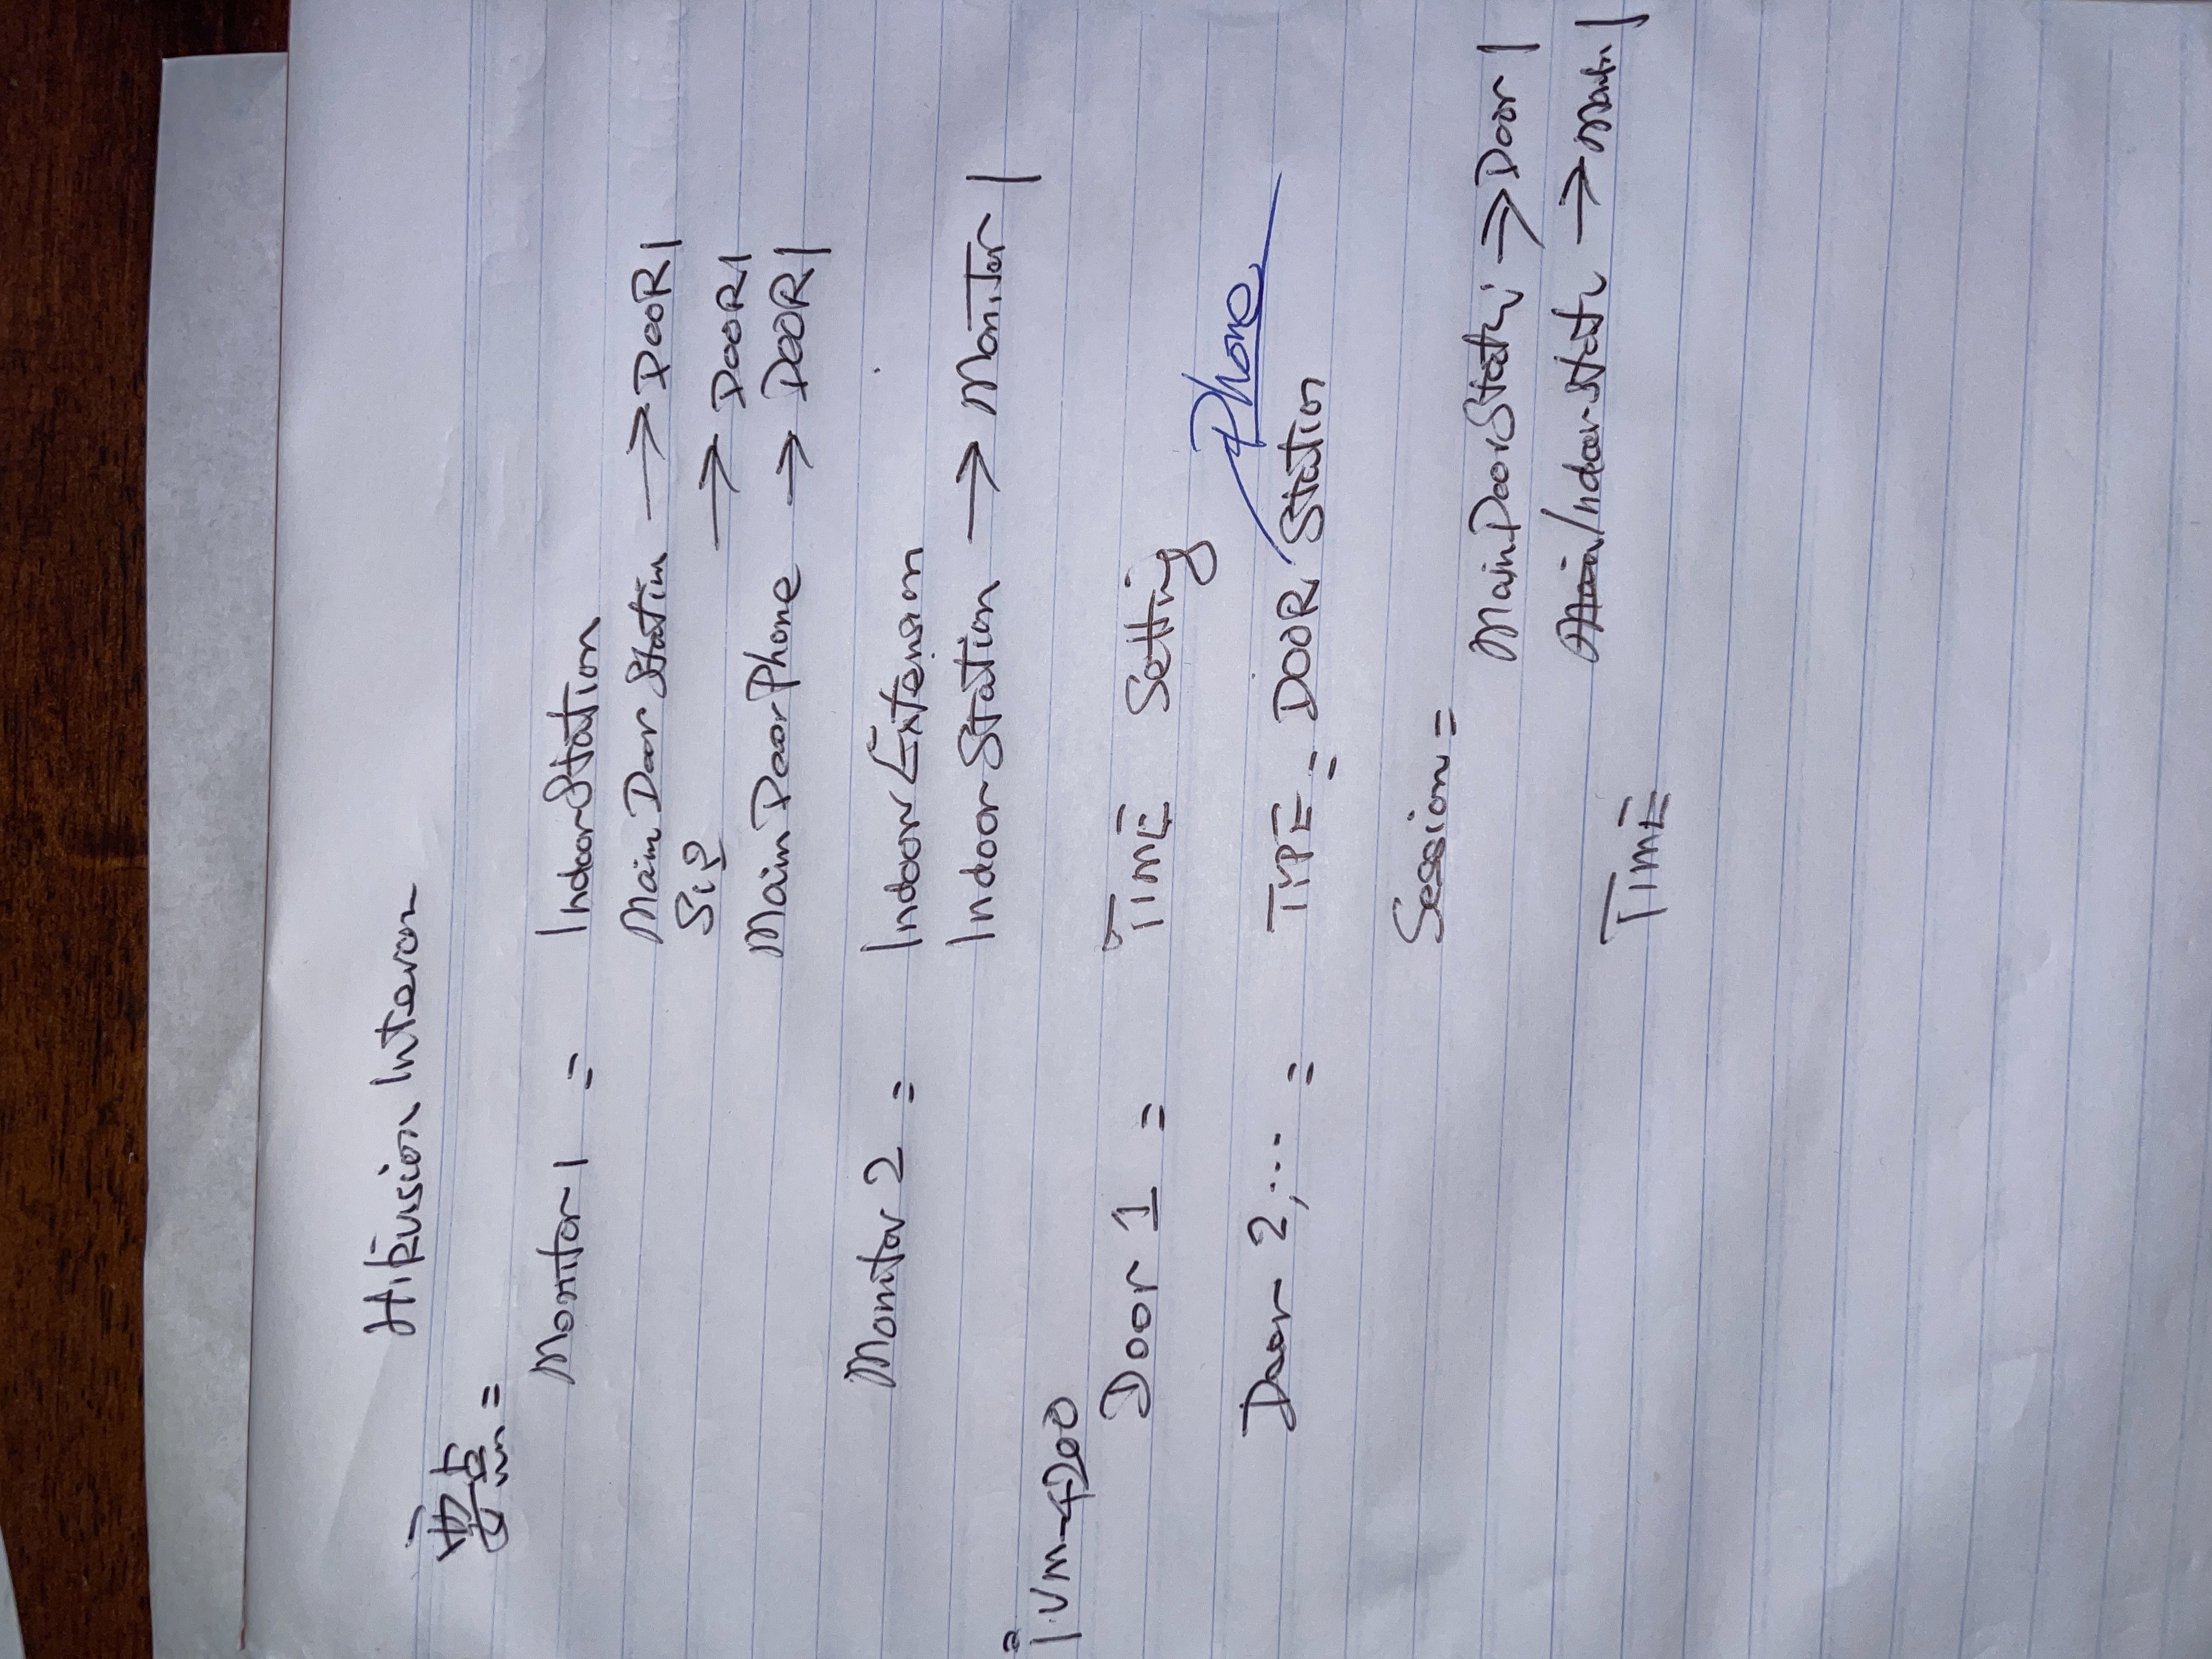 HiKvision Intercon
要点=
Monitor 1 = Indoor Station
Main Door Station → DOOR 1
Sip → DOOR 1
Main Door Phone → DOOR 1
Monitor 2 = Indoor Extension
Indoor Station → Monitor 1
iVM-4200
Door 1 = TIME Setting
Phone
Door 2, ... = TYPE = DOOR Station
Session =
Main Door Stati → Door 1
Main/Indoor Stati → Monitor 1
TIME